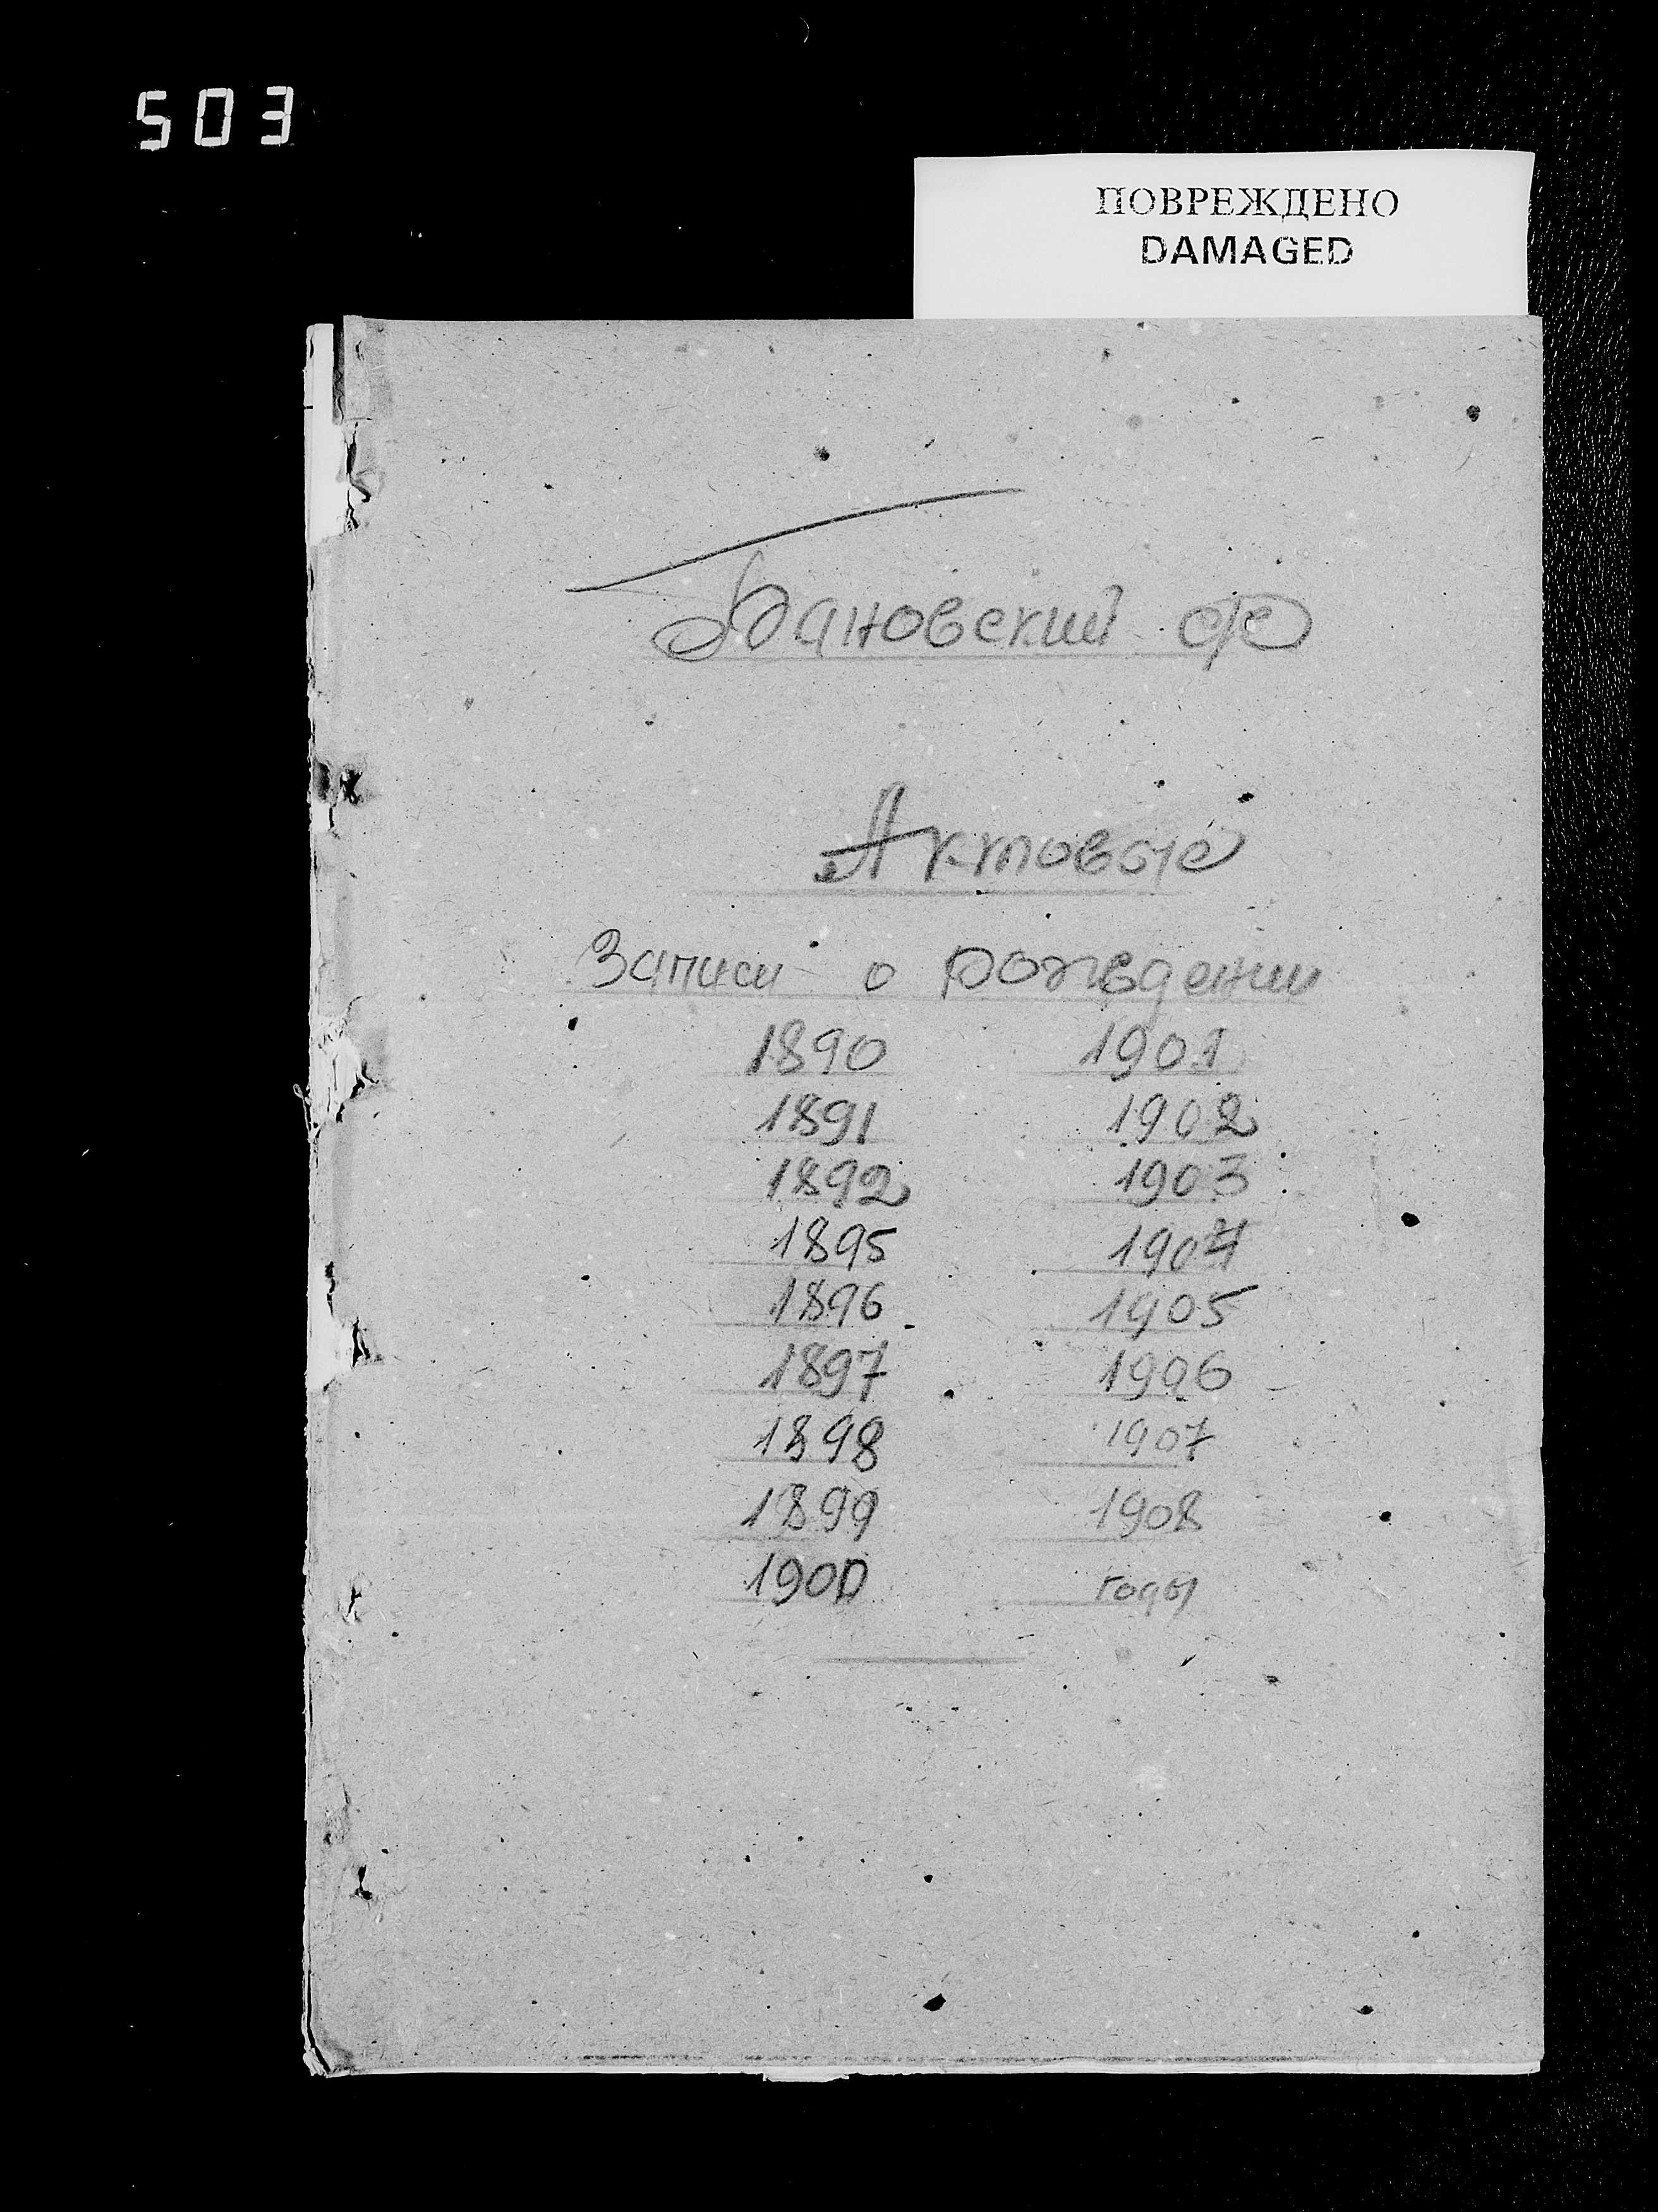 503
ПОВРЕЖДЕНО
DAMAGED
Бановский
Актовые
Записи о рождении
1890 1901
1891 1902
1892 1903
1895 1904
1896 1905
1897 1906
1898 1907
1899 1908
1900 годы